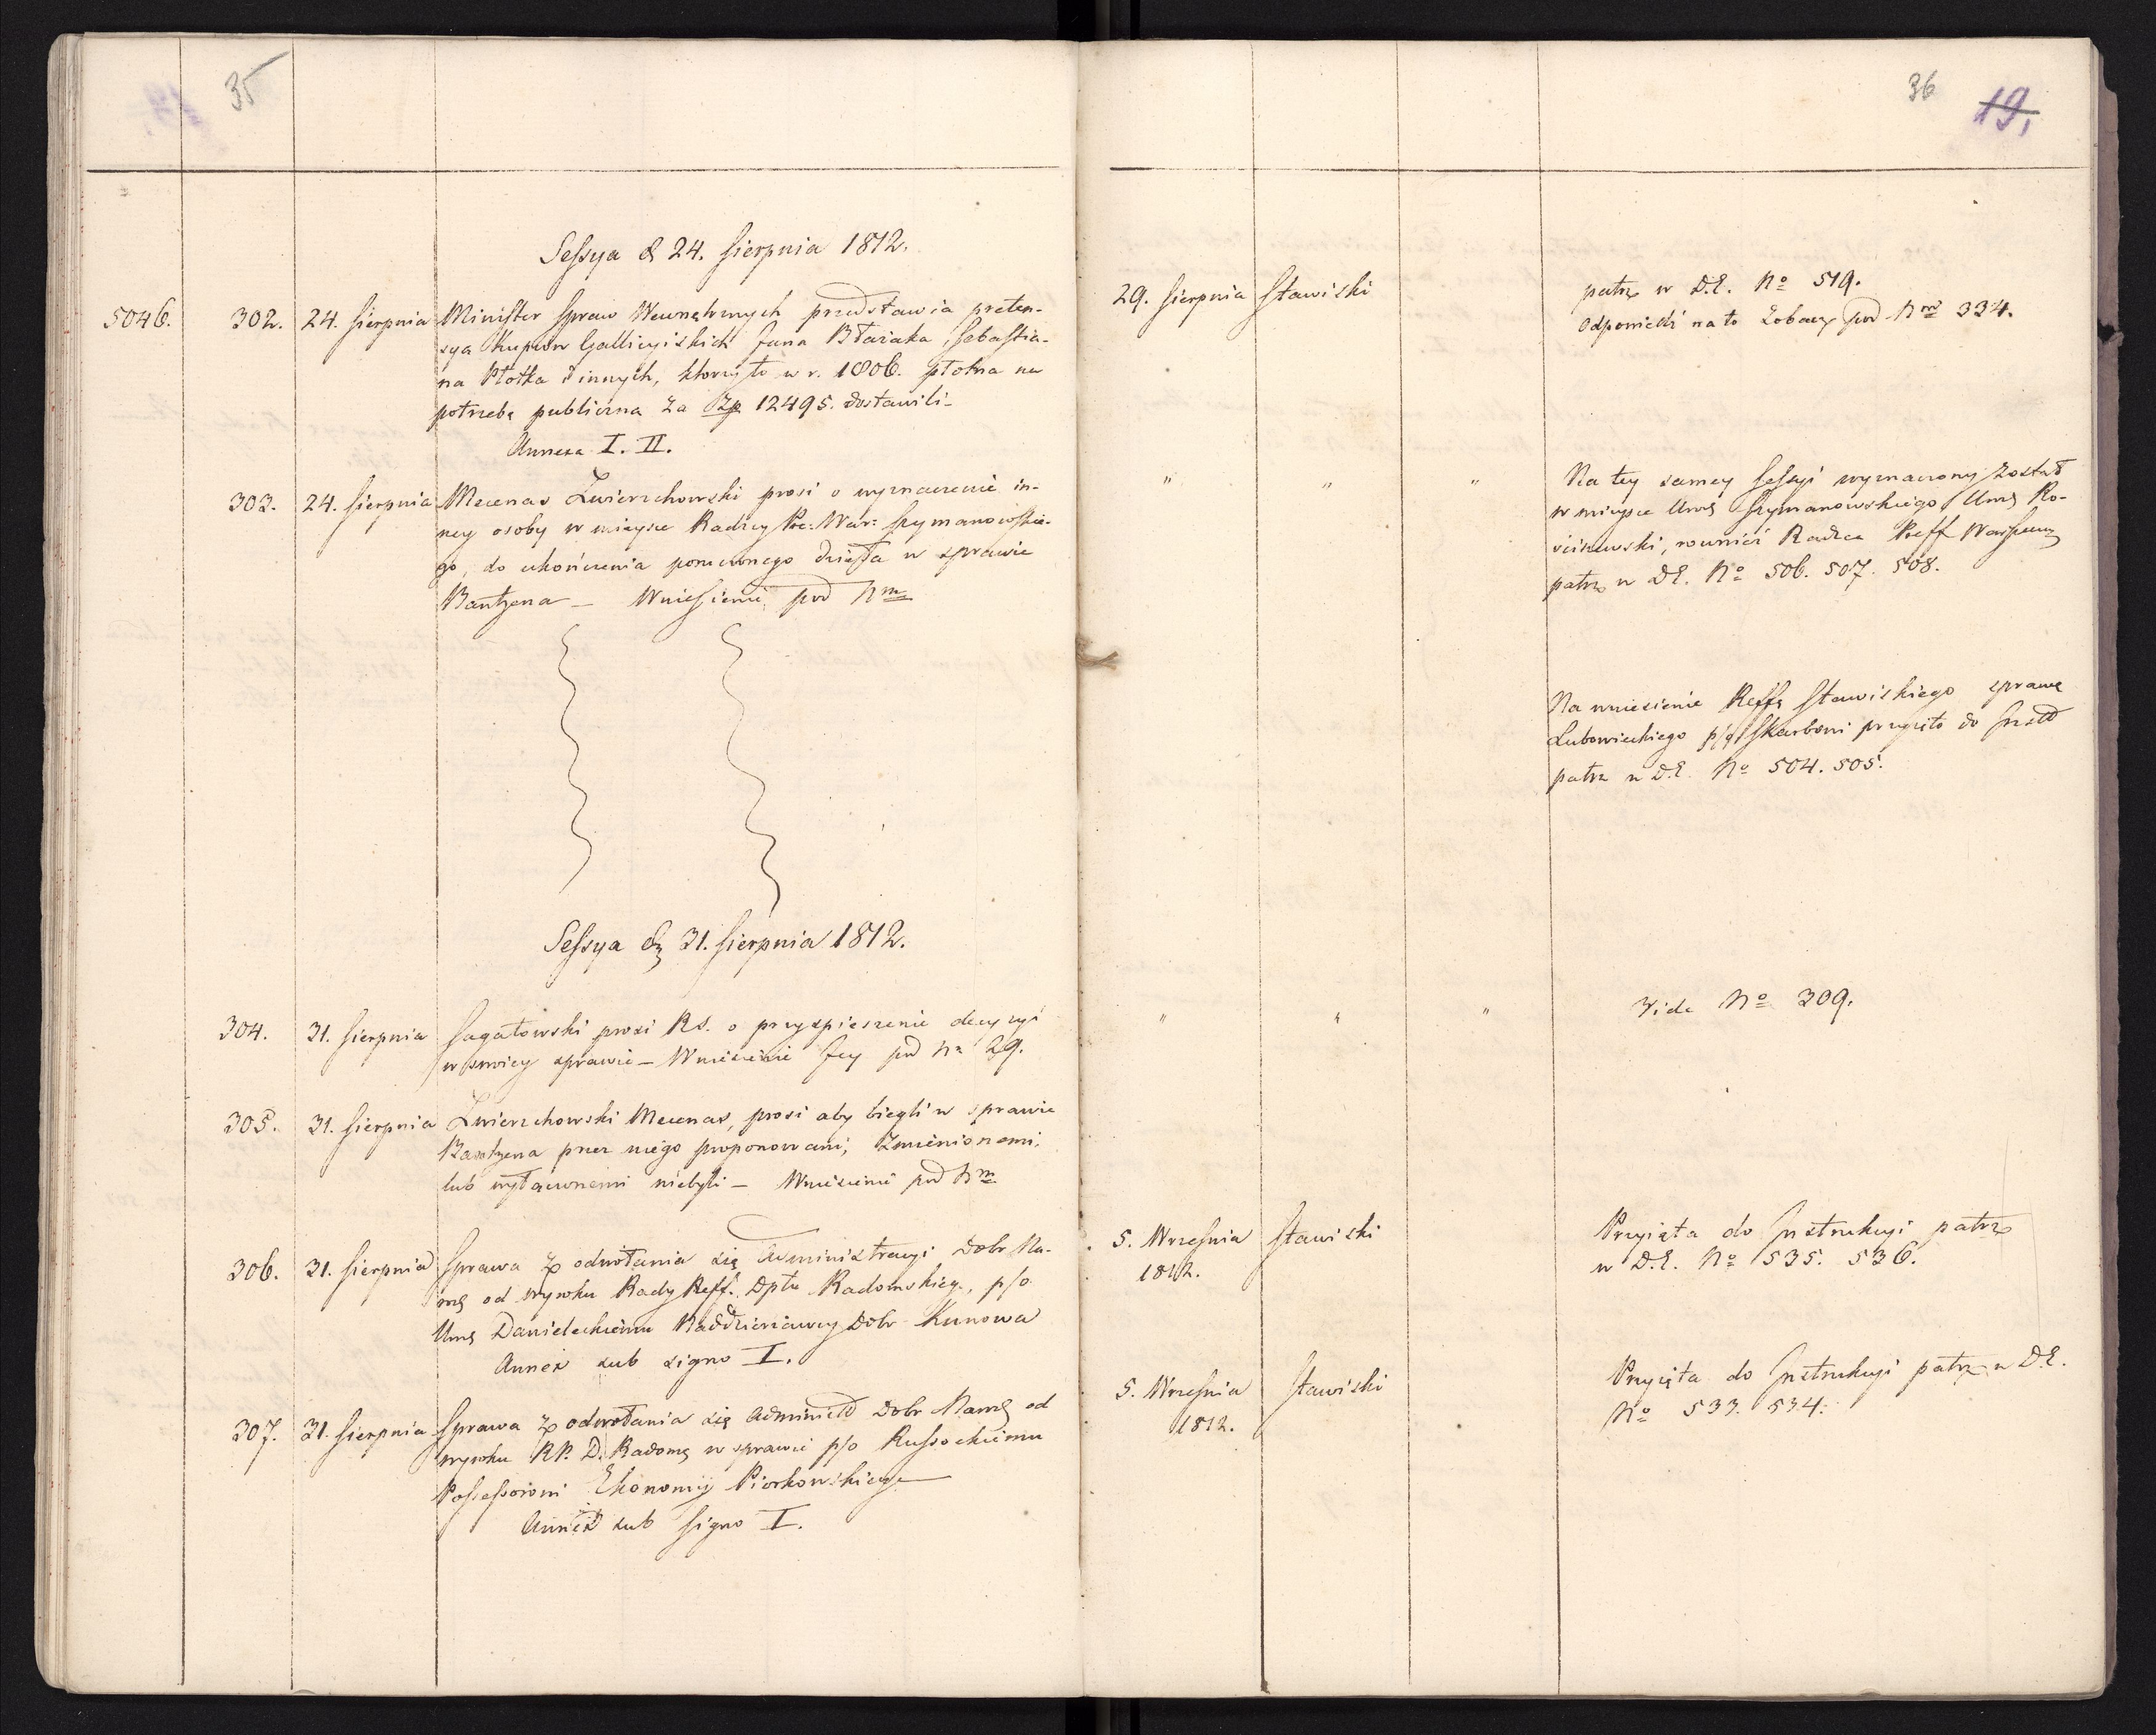 35
Sessya d 24. Sierpnia 1812.
5046. 302. 24. Sierpnia Minister Spraw Wewnętrznych przedstawia preten-
sye Kupców Gallicyiskich Jana Błażaka, Sebastia-
na Płotka i innych, którzy to w r. 1806. płotna na
potrzebę publiczna za Zp 12495. dostawili-
Annexa I. II.
303. 24. Sierpnia Mecenas Zwierzchowski prosi o wyznaczenie in-
ney osoby w mieysce Radzcy Pre: War: Szymanowskie-
go, do ukończenia poruczonego dzieła w sprawie
Bantzena — Wniesienie pod Nm
Sessya d 31. Sierpnia 1812.
304. 31. Sierpnia Sagatowski prosi RS. o przyspieszenie decyzyi
w swoiey sprawie — Wniesienie Jey pod No 29.
305. 31. Sierpnia Zwierzchowski Mecenas, prosi aby biegli w sprawie
Bantzena przez niego proponowani, zmienionemi,
lub wyłączonemi niebyli — Wniesienie pod Nm
306. 31. Sierpnia Sprawa z odwołania się Administracyi Dobr Na-
od wyroku Rady Reff. Dptu Radomskieg., p/o
Danieleckiemu Naddzierżawcy Dobr Kunowa
Annex sub signo I.
307. 31. Sierpnia Sprawa z odwołania się Dobr od
wyroku RP. D. Radoms w sprawie p/o Russockiemu
Possessorowi Ekonomij Piorkowskiego
Annex sub signo I.
36 19,
29. Sierpnia Stawiski patrz w D.E. No 519.
Odpowiedź na to zobacz pod Nro 334.
" " " Na tey samey Sessyi wyznaczony został
w mieysce Szymanowskiego Ro-
ściszewski, rownież Radzca Preff
patrz w D.E. No 506. 507. 508.
Na wniesienie Reff Stawiskiego sprawę
Lubowieckiego p/o Skarbowi przyięto do
patrz w D.E. No 504. 505.
" " " Vide No 309.
5. Września Stawiski Przyięta do Instrukcyi patrz
1812. w D.E. No 535. 536.
5. Września Stawiski Przyięta do Instrukcyi patrz w D.E.
1812. No 533. 534.